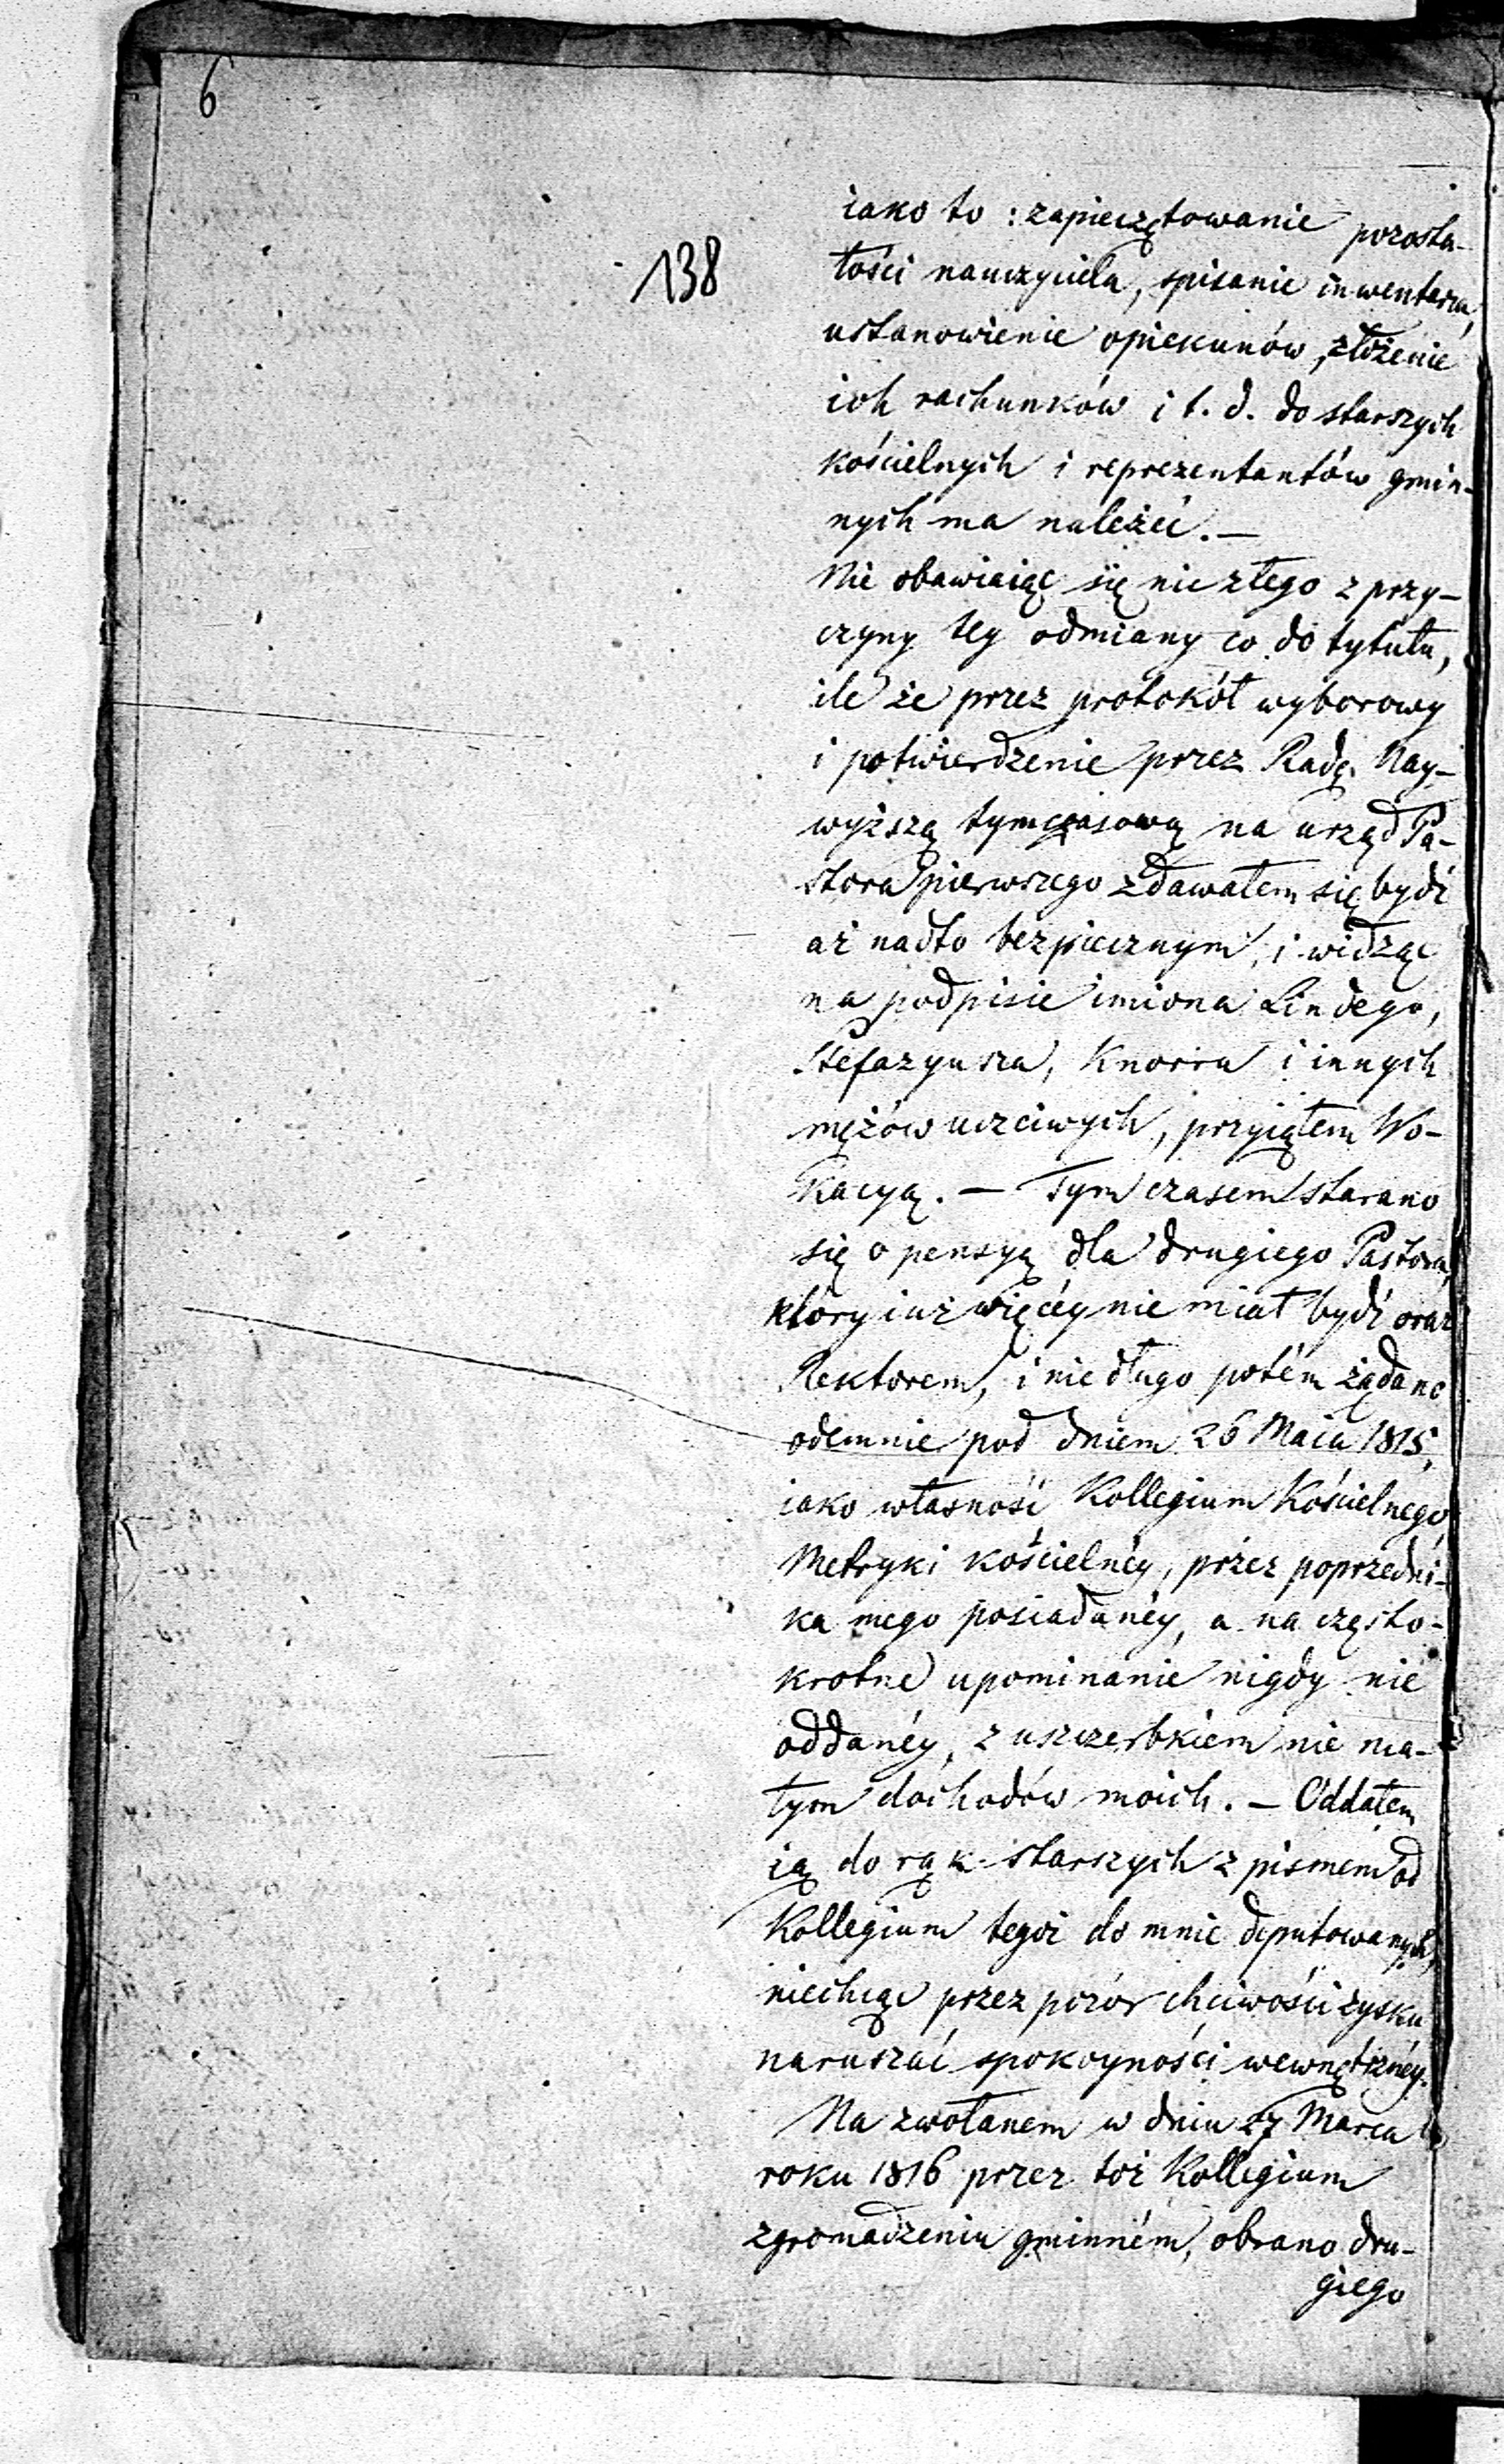 6
138
iako to: zapieczętowanie pozosta-
łości nauczyciela, spisanie inwentarza,
ustanowienie opiekunów, złożenie
ich rachunków i t. d. do starszych
kościelnych i reprezentantów gmin-
nych ma należeć. —
Nie obawiaiąc się nic złego z przy-
czyny tey odmiany co do tytułu,
ile że przez protokół wyborowy
i potwierdzenie przez Radę Nay-
wyższą tymczasową na urząd Pa-
stora pierwszego zdawałem się bydź
aż nadto bezpiecznym, i widząc
na podpisie imiona Lindego,
Stefazyusza, Knorra i innych
mężów uczciwych, przyiąłem Wo-
kacyą. — Tym czasem starano
się o pensyą dla drugiego Pastora,
który iuż więcéy nie miał bydź oraz
Rektorem, i nie długo potém żądano
odemnie pod dniem 26 Maia 1815,
iako własność Kollegium Kościelnego,
Metryki kościelnéy, przez poprzedni-
ka mego posiadanéy, a na często-
krotne upominanie nigdy nie
oddanéy, z uszczerbkiem nie ma-
łym dochodów moich. — Oddałem
ią do rąk starszych z pismem od
Kollegium tegoż do mnie deputowanych,
niechcąc przez pozór chciwości zysku
naruszać spokoyności wewnętrznéy.
Na zwołanem w dniu 27 Marca
roku 1816 przez toż Kollegium
zgromadzeniu gminném, obrano dru-
giego